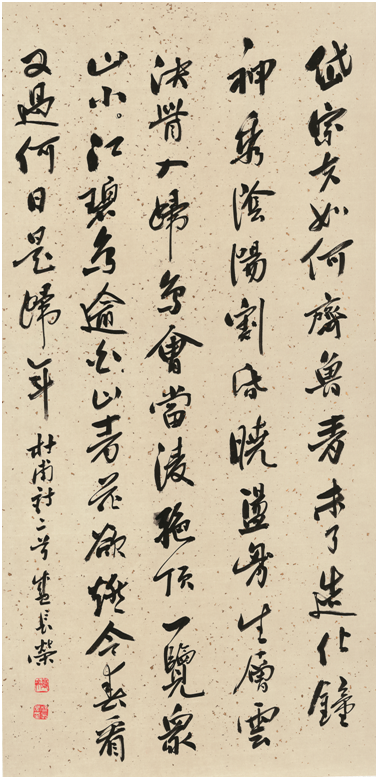 岱宗夫如何齊魯青未了造化鐘
神秀陰陽割昏曉盪胸生層雲
決眥入歸鳥會當淩絕頂一覽衆
山小。江碧鳥逾白山青花欲燃今春看
又過何日是歸年 杜甫詩二首 長榮